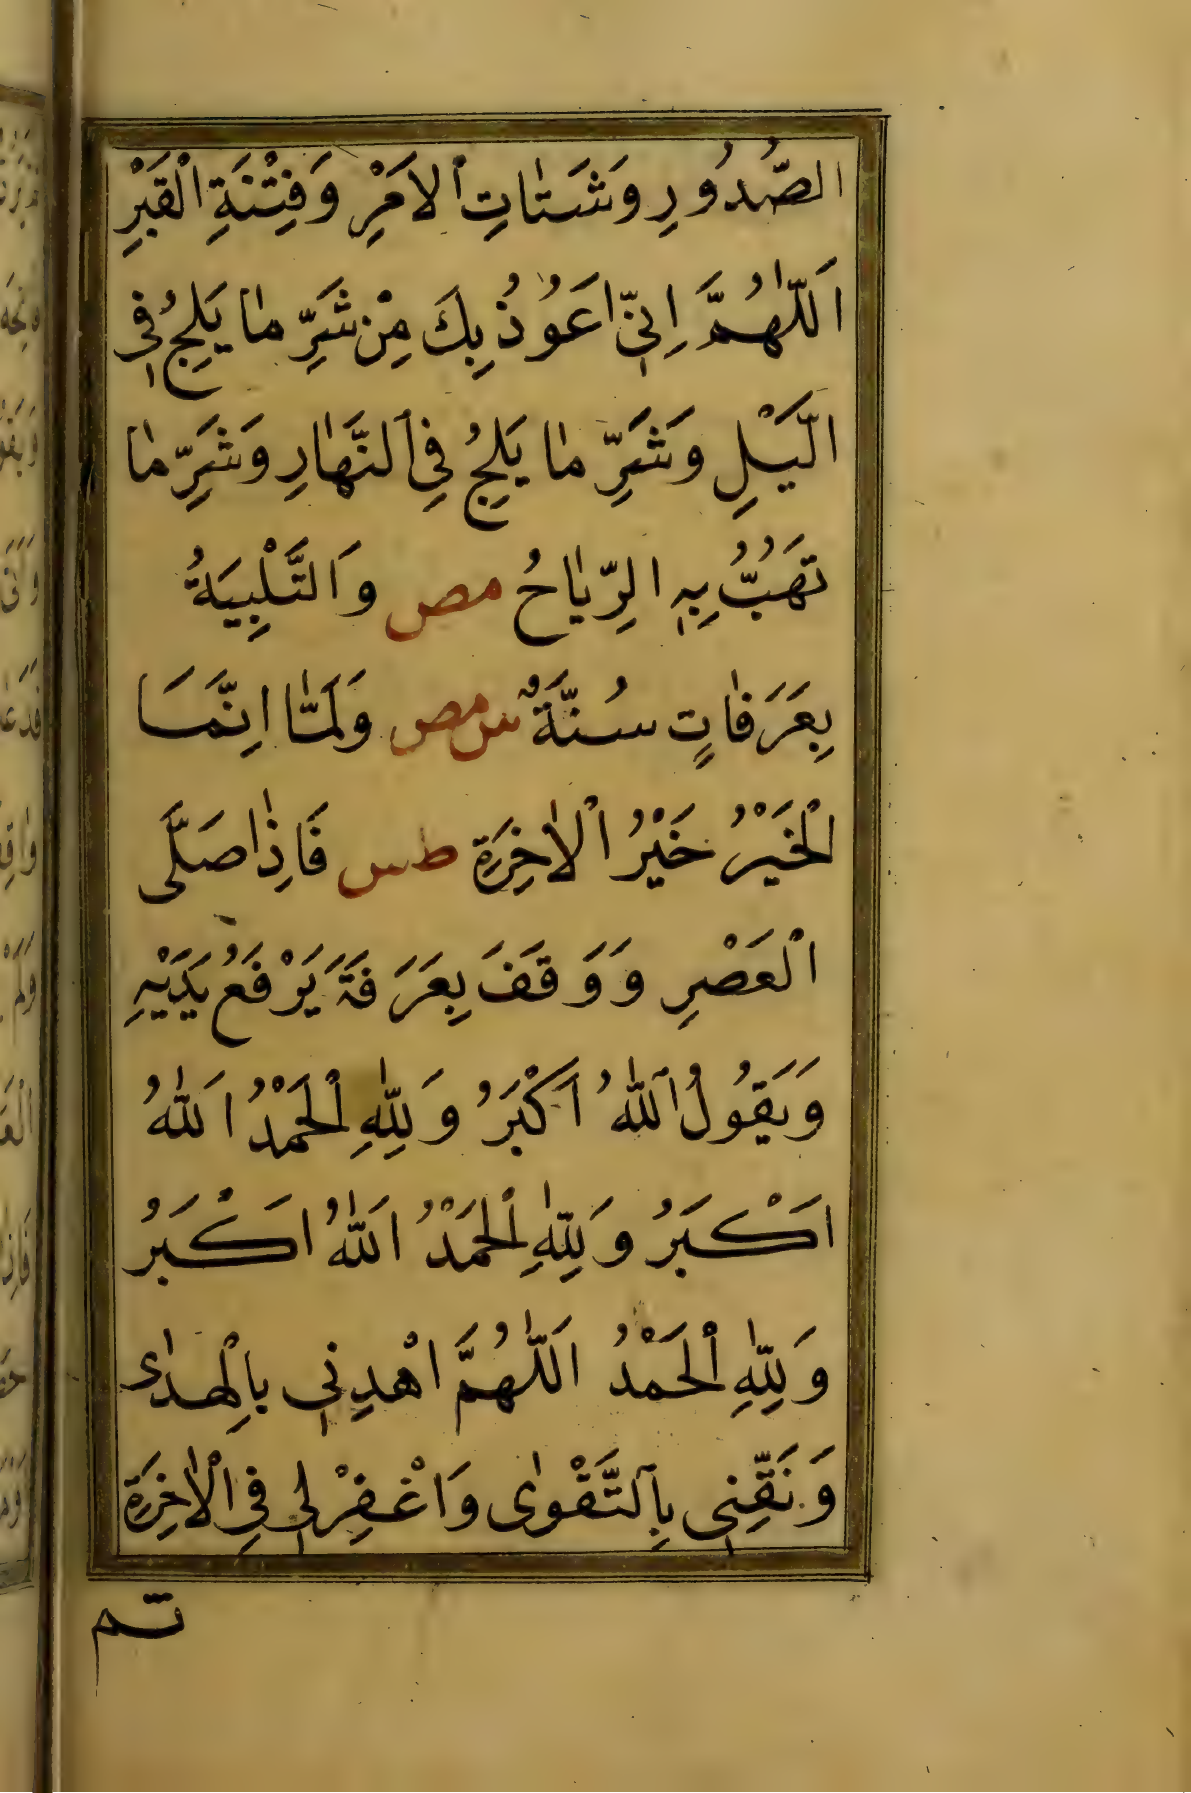 الصُّدُورِ وَشَتَاتِ الْاَمْرِ وَفِتْنَةِ الْقَبْرِ
اَللّٰهُمَّ اِنِّي اَعُوُذُ بِكَ مِنْ شَرِّ مٰا يَلِجُ فِي
الَّيْلِ وَشَرِّ مٰا يَلِجُ فِي النَّهٰارِ وَشَرِّ مٰا
تَهُبُّ بِهِ الرِّيٰاحُ مص وَالتَّلْبِيَةُ
بِعَرَفٰاتٍ سُنَّةٌ س مص وَلَمّٰا اِنَّمَا
الْخَيْرُ خَيْرُ الْاٰخِرَةِ طس فَاِذٰا صَلَّى
الْعَصْرِ وَوَقَفَ بِعَرَفَةَ يَرْفَعُ يَدَيْهِ
وَيَقُولُ اَللّٰهُ اَكْبَرُ وَلِلّٰهِ الْحَمْدُ اَللّٰهُ
اَكْبَرُ وَلِلّٰهِ الْحَمْدُ اَللّٰهُ اَكْبَرُ
وَلِلّٰهِ الْحَمْدُ اَللّٰهُمَّ اهْدِنِي بِالْهُدٰى
وَنَقِّنِي بِالتَّقْوٰى وَاغْفِرْلِي فِي الْاٰخِرَةِ
تم